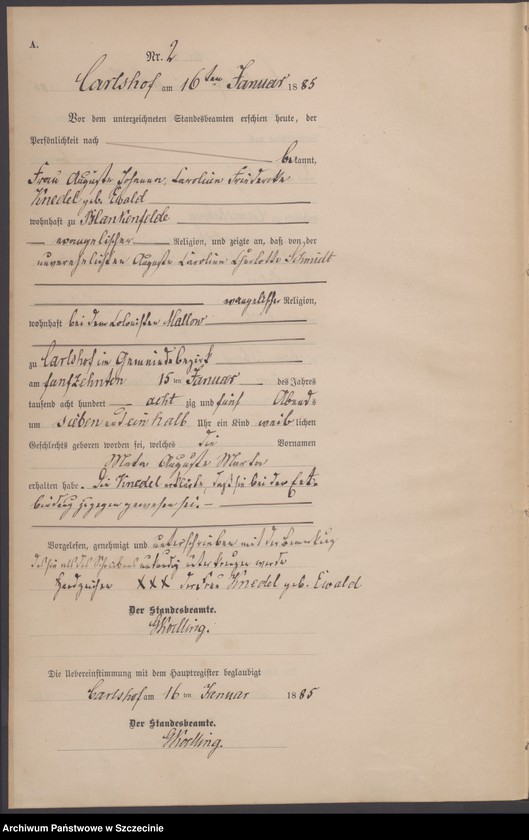 A.
Nr. 2
Carlshof am 16ten Januar 1885
Vor dem unterzeichneten Standesbeamten erschien heute, der
Persönlichkeit nach
bekannt,
Frau Auguste Johanna, Caroline Friedericke
Knedel geb. Ewald
wohnhaft zu Blankenfelde
evangelischer Religion, und zeigte an, daß von der
unverehelichten Auguste Caroline Charlotte Schmidt
evangelischer Religion,
wohnhaft bei dem Kolonisten Mallow
zu Carlshof im Gemeindebezirk
am fünfzehnten 15ten Januar des Jahres
tausend acht hundert acht zig und fünf Abends
um sieben und ein halb Uhr ein Kind weiblichen
Geschlechts geboren worden sei, welches die Vornamen
Auguste Martha
erhalten habe. Die Knedel erklärte, daß sie bei der Ent-
bindung zugegen gewesen sei.
Vorgelesen, genehmigt und unterschrieben mit der Bemerkung
daß sie als des Schreibens unkundig unterkreuzen werde
Handzeichen XXX der Frau Knedel geb. Ewald
Der Standesbeamte.
Die Uebereinstimmung mit dem Hauptregister beglaubigt
Carlshof am 16ten Januar 1885
Der Standesbeamte.
Archiwum Państwowe w Szczecinie